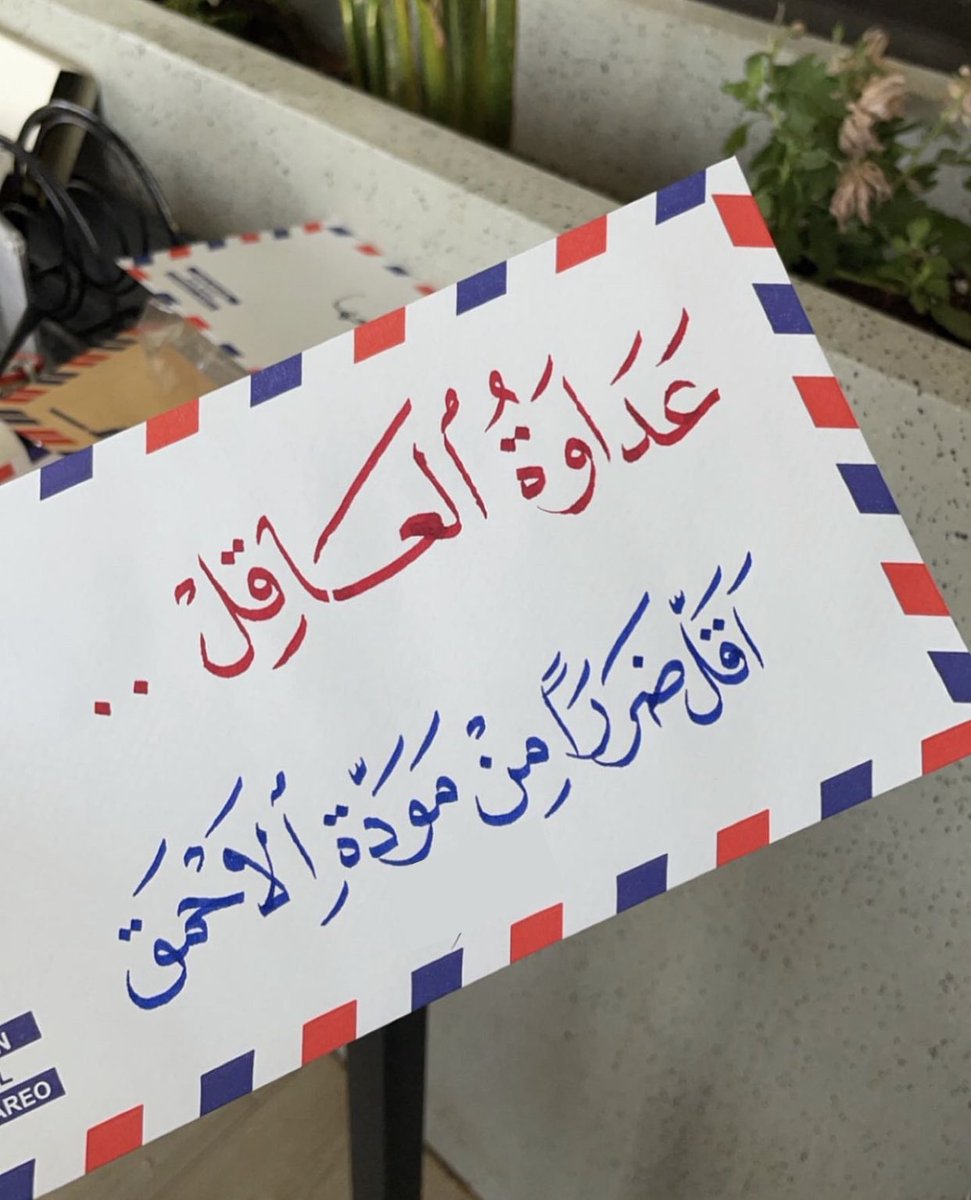 عَدَاوَةُ اُلعَاقِلْ ..
اَقَلّ ضَرَرَاً مِنْ مَوَدَّةِ اُلاَحْمَقَ
AREO